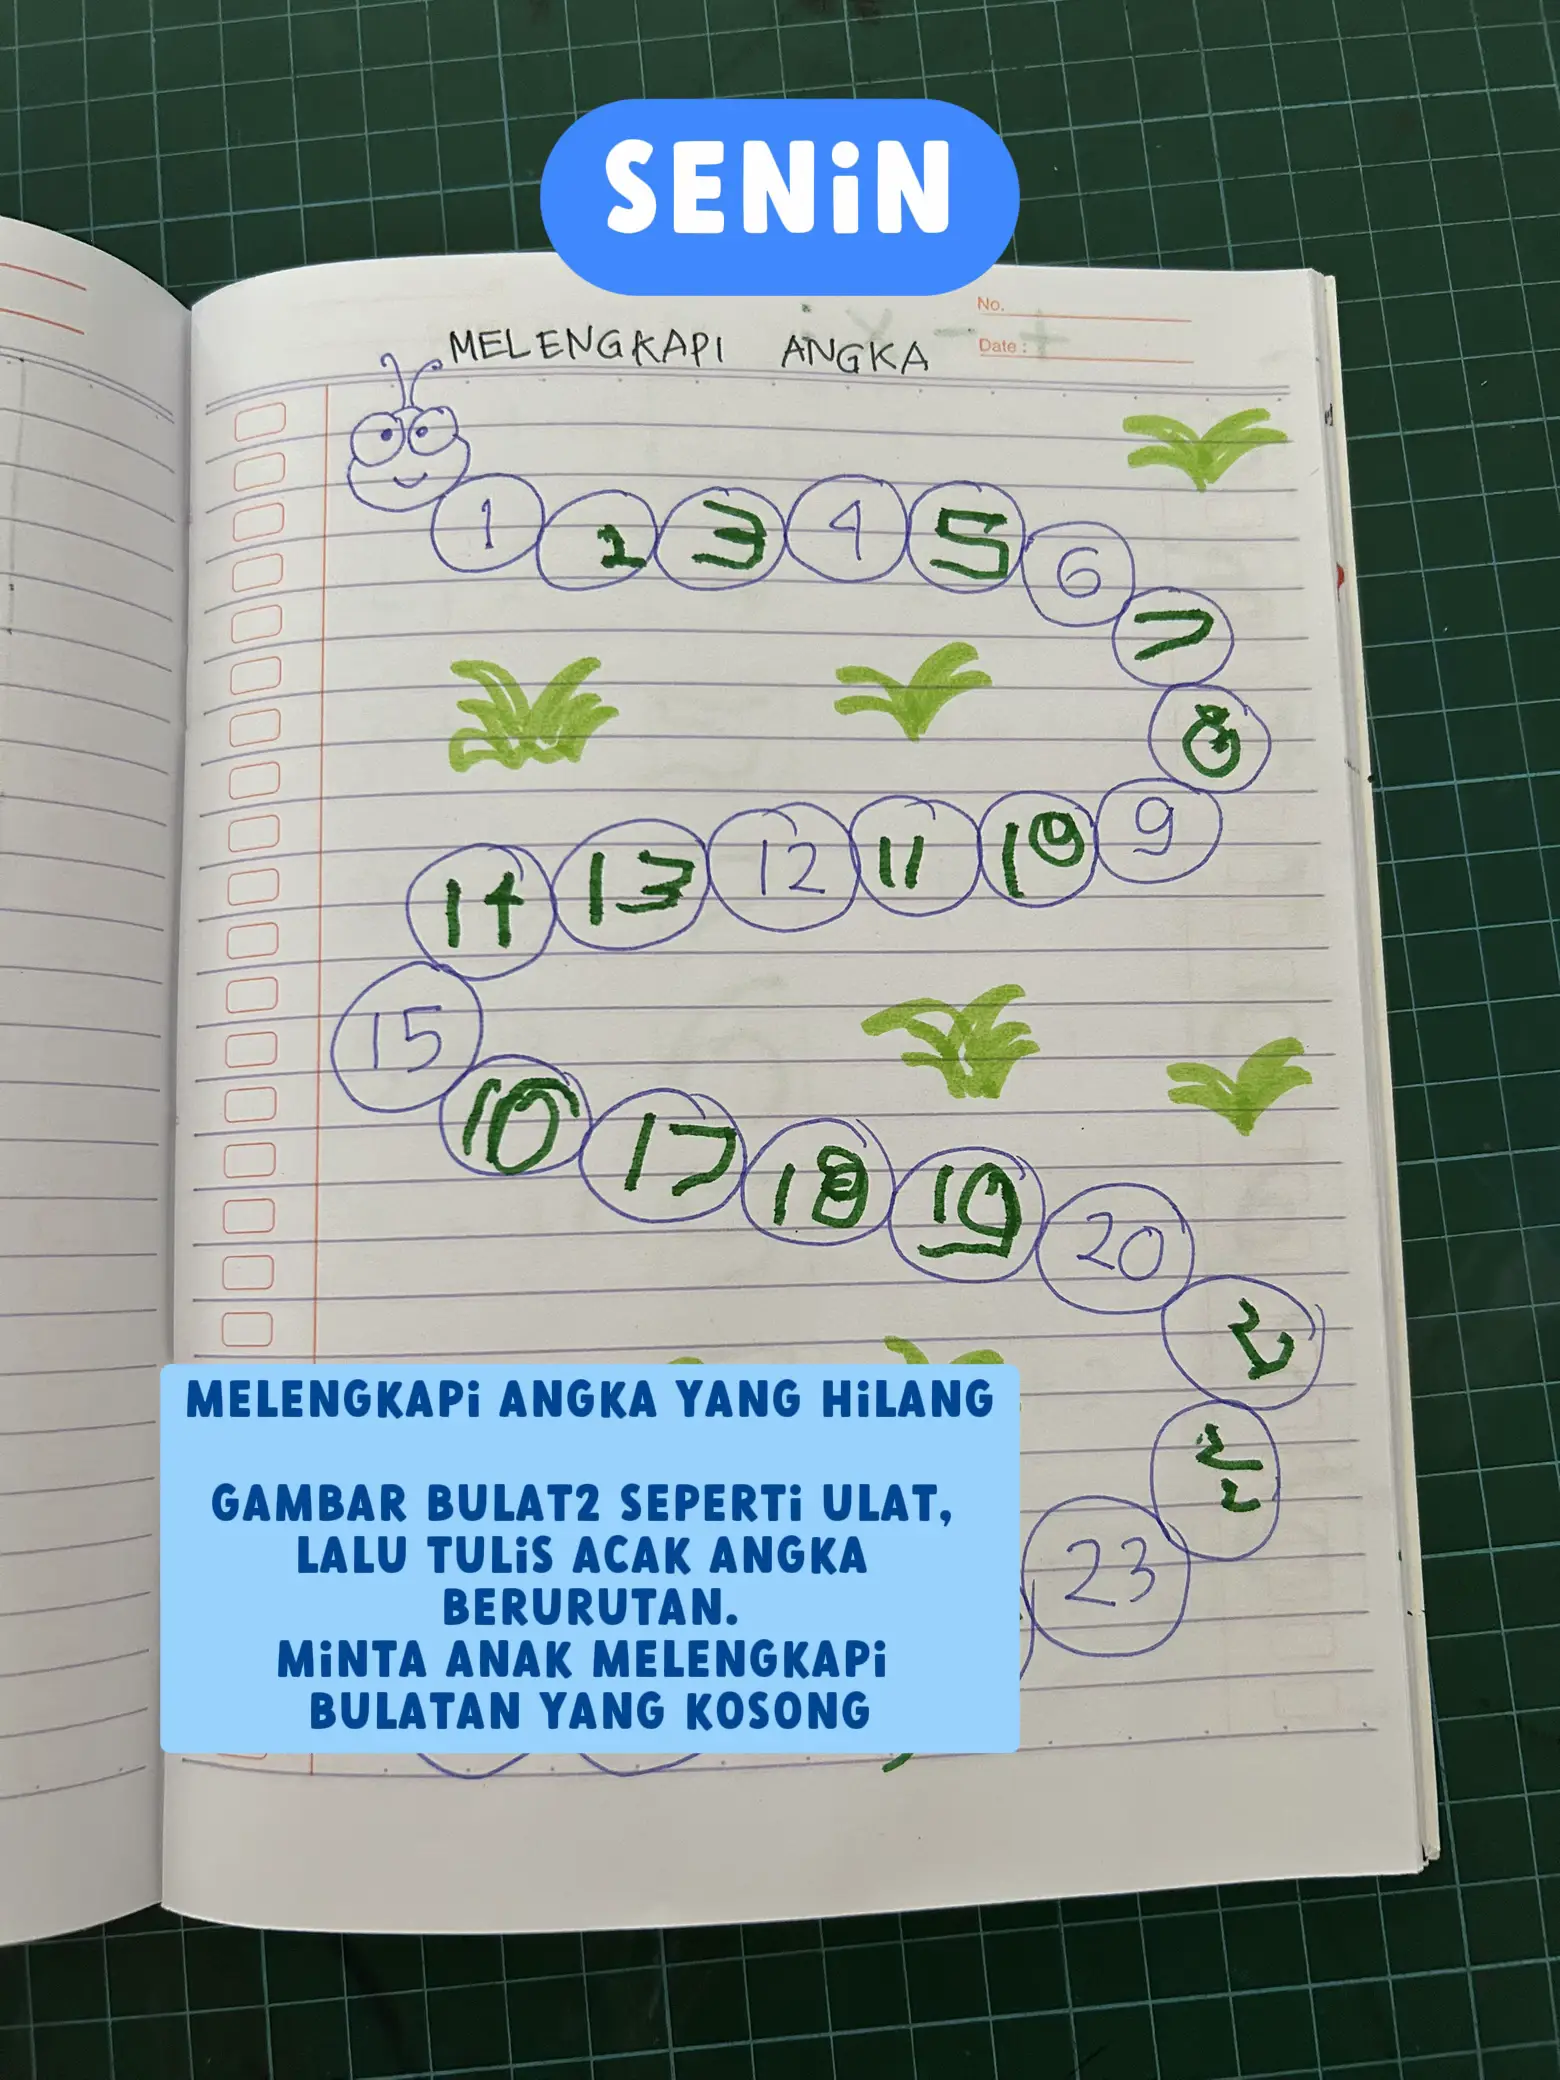 SENiN
No.
Date :
MELENGKAPI ANGKA
1 2 3 4 5 6
7
8
14 13 12 11 10 9
15
16 17 18 19 20
22
23
MELENGKAPi ANGKA YANG HiLANG
GAMBAR BULAT2 SEPERTi ULAT,
LALU TULiS ACAK ANGKA
BERURUTAN.
MiNTA ANAK MELENGKAPi
BULATAN YANG KOSONG